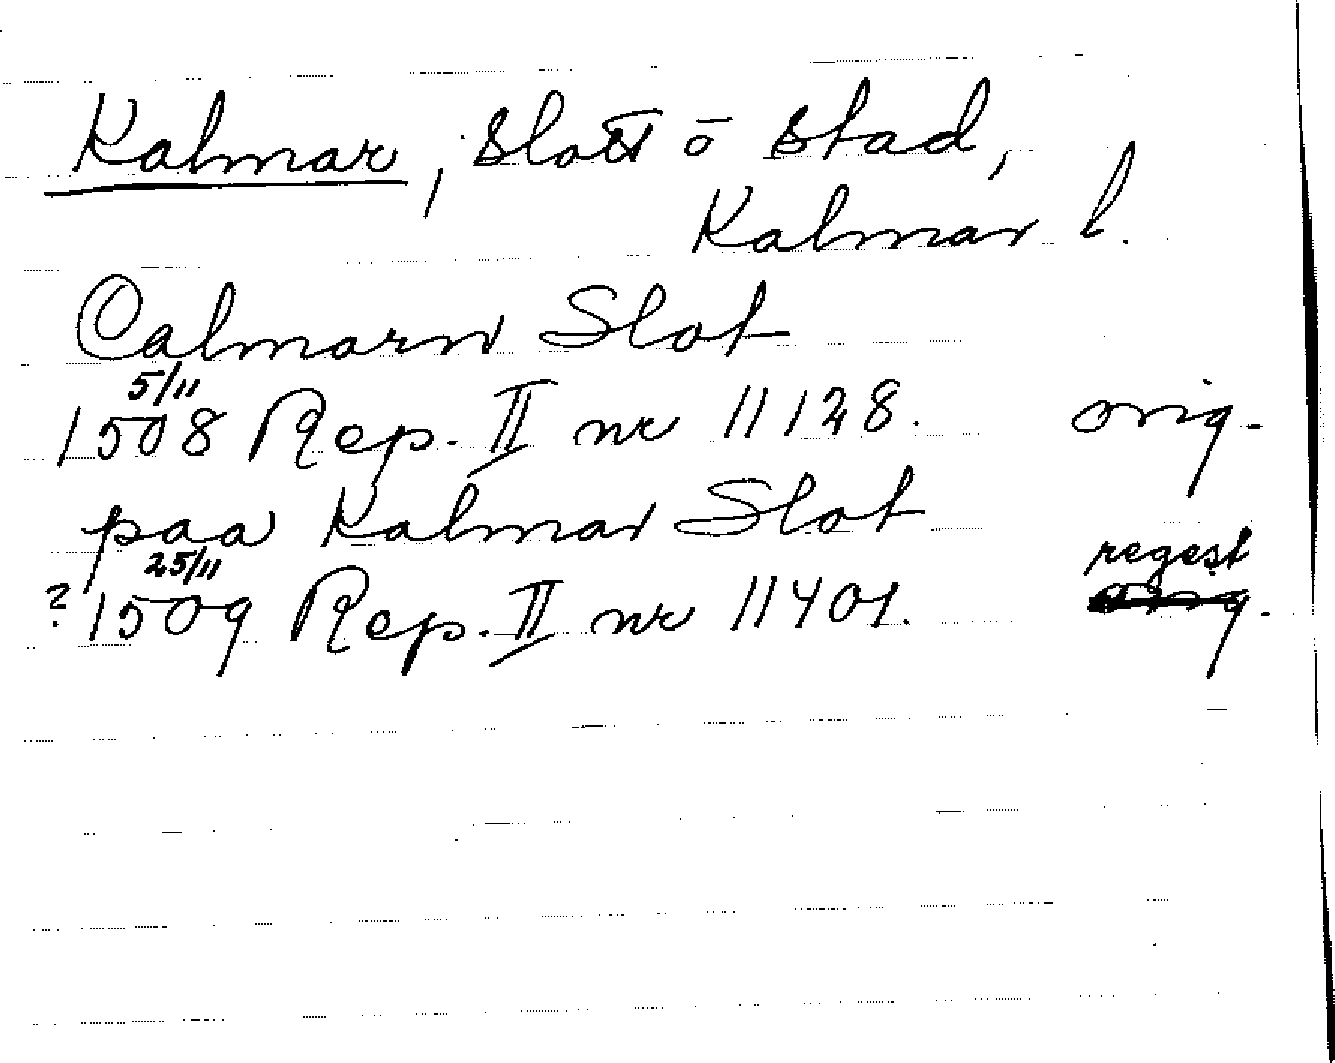 Kalmar, Slott o Stad,
Kalmar l.
Calmarn Slot
5/11
1508 Rep. II nr 11128. orig.
paa Kalmar Slot
25/11 regest
? 1509 Rep. II nr 11401. orig.